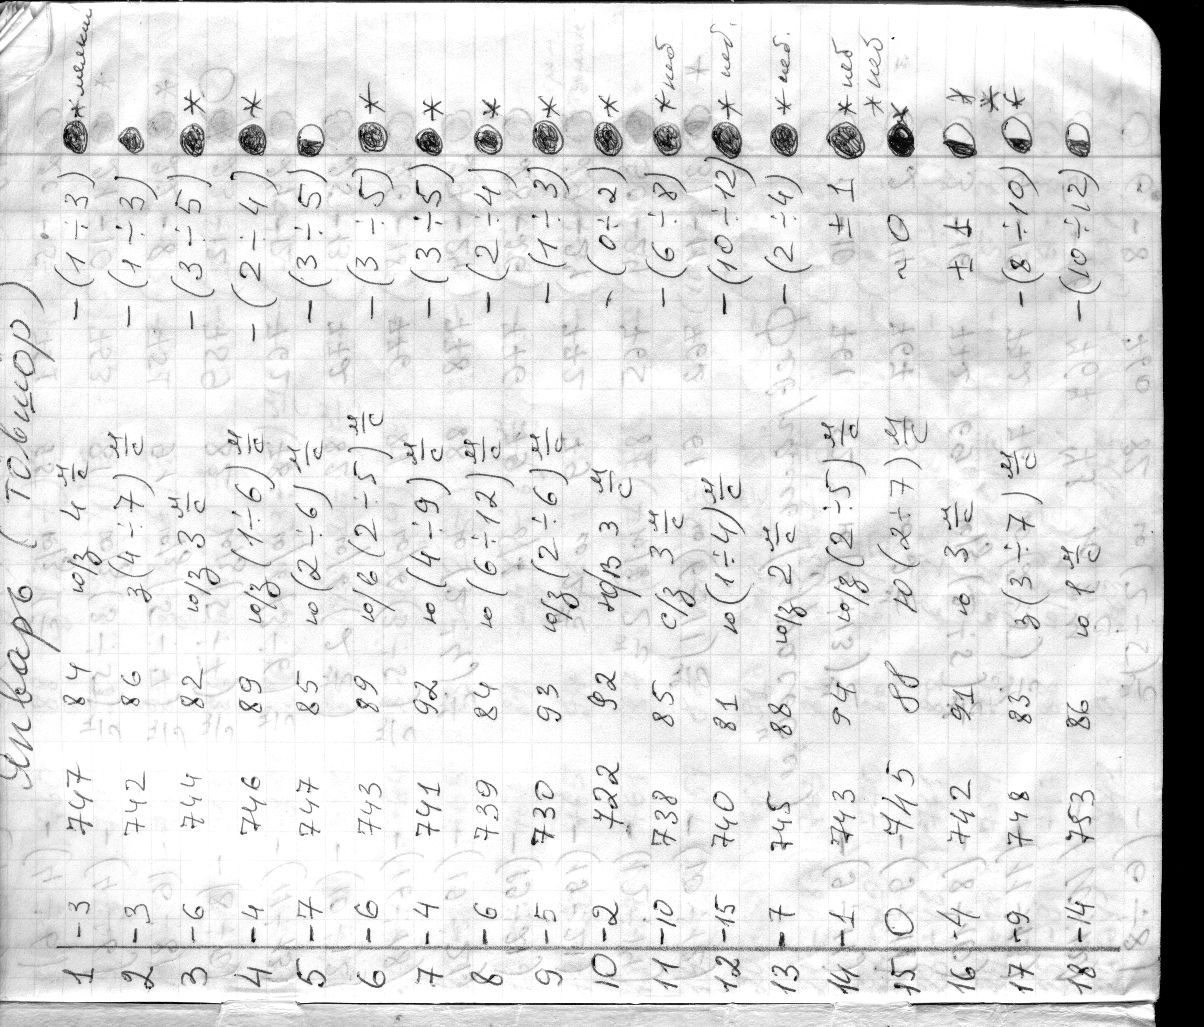 Январь (товшор)
1 -3 747 84 ю/з 4 м/с -(1÷3) * мелкий
2 -3 742 86 з(4÷7) м/с -(1÷3)
3 -6 744 82 ю/з 3 м/с -(3÷5) *
4 -4 746 89 ю/з (1÷6) м/с -(2÷4) *
5 -7 747 85 ю (2÷6) м/с -(3÷5)
6 -6 743 89 ю/в (2÷5) м/с -(3÷5) *
7 -4 741 92 ю (4÷9) м/с -(3÷5) *
8 -6 739 84 ю (6÷12) м/с -(2÷4) *
9 -5 730 93 ю/з (2÷6) м/с -(1÷3) *
10 -2 722 92 ю/в 3 м/с -(0÷2) *
11 -10 738 85 с/з 3 м/с -(6÷8) * неб
12 -15 740 81 ю (1÷4) м/с -(10÷12) * неб.
13 -7 745 88 ю/з 2 м/с -(2÷4) * неб.
14 -1 743 94 ю/з (2÷5) м/с ±1 * неб
* неб.
15 0 745 88 ю (2÷7) м/с ~0 *
16 -4 742 91 ю 3 м/с ±1 *
*
17 -9 748 85 з (3÷7) м/с -(8÷10) *
18 -14 753 86 ю 1 м/с -(10÷12)